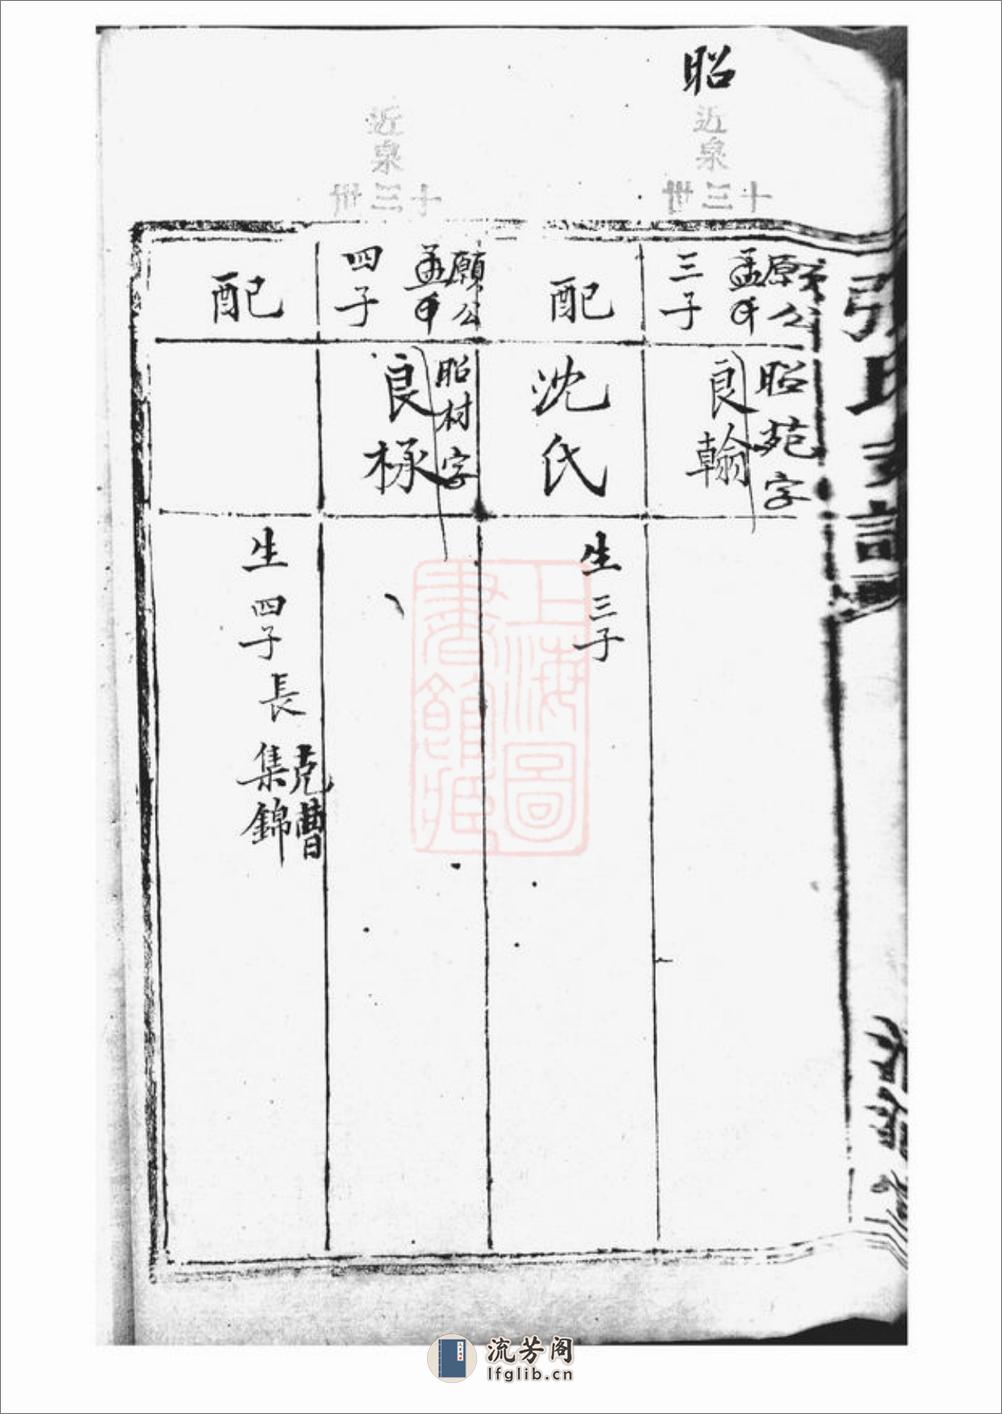 昭
近泉
十三世
孟
公
三子
昭苑字
良翰
配
沈氏
生三子
近泉
十三世
願公
孟
四子
昭材字
良
配
生四子長
克曹
集錦
張氏
上海圖
書館藏
流芳阁
lfglib.cn